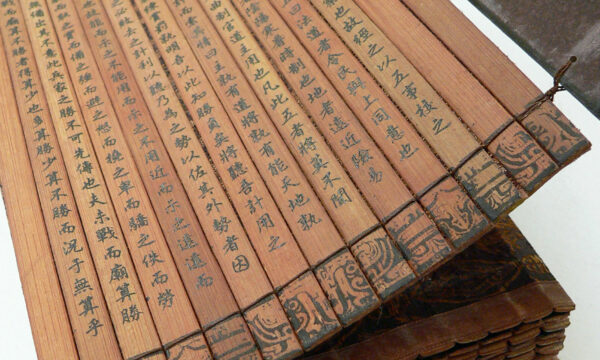 也故經之以五事校之
曰法道者令民與上同意也
寒暑時制也地者遠近險易
曲制官道主用也凡此五者將莫不聞
索其情曰主孰有道將孰有能天地孰
賞罰孰明吾以此知勝負矣將聽吾計用之
敗去之計利以聽乃為之勢以佐其外勢者因
能而示之不能用而示之不用近而示之遠遠而
備之強而避之怒而撓之卑而驕之佚而勞
出其不意此兵家之勝不可先傳也夫未戰而廟算勝
不勝者得算少也多算勝少算不勝而況于無算乎